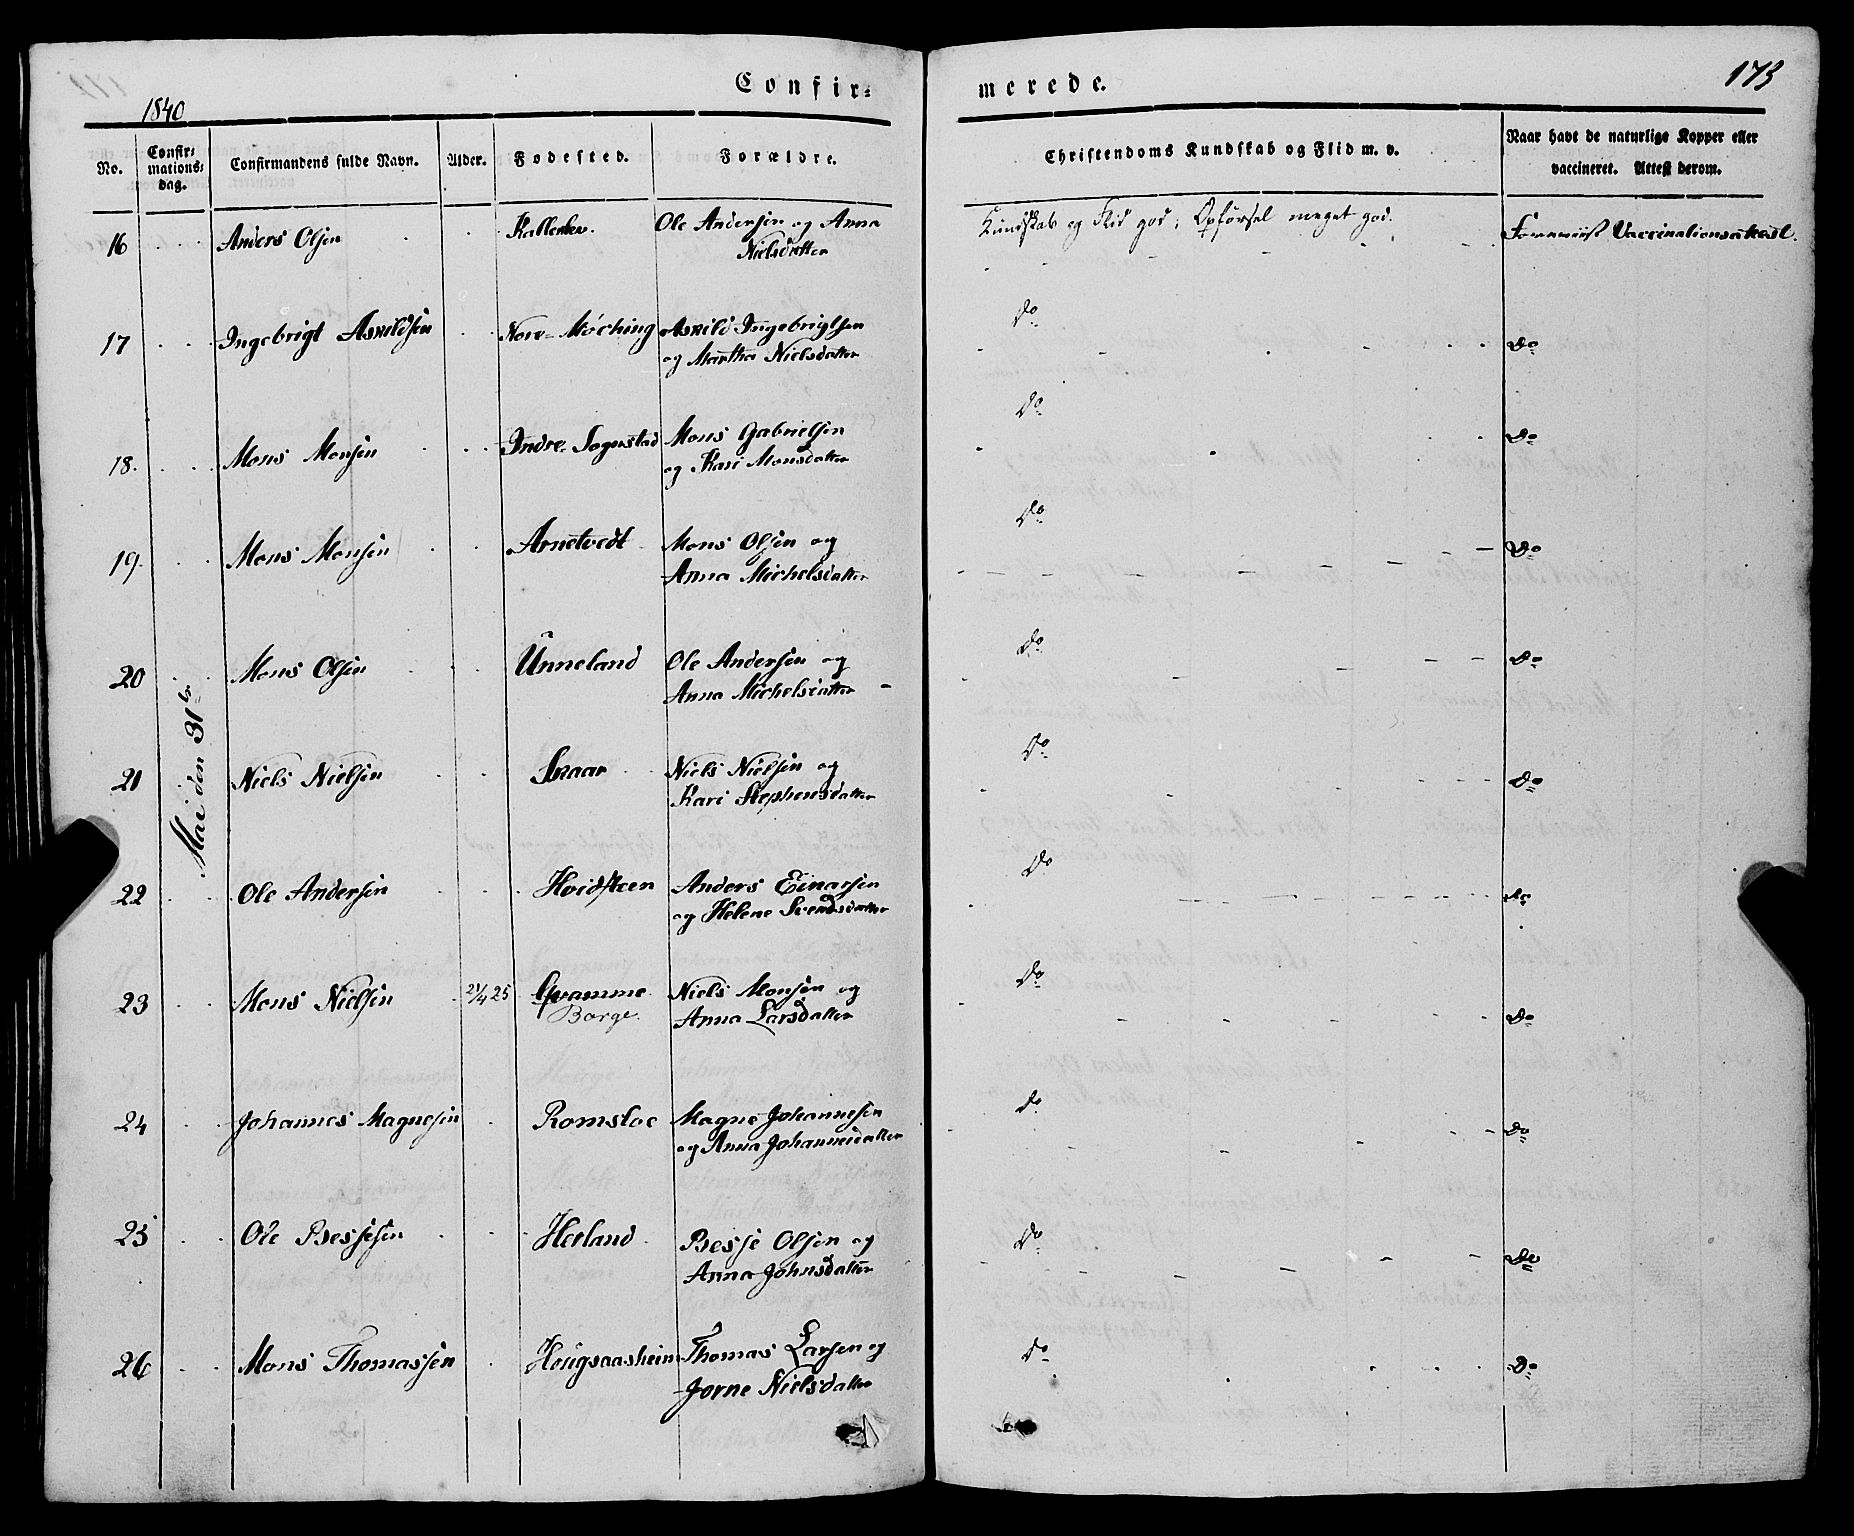 Confir-
merede.
173
1840
No.
Confir-
mations-
dag.
Confirmandens fulde Navn.
Alder.
Fødested.
Forældre.
Christendoms Kundskab og Flid m. v.
Naar havt de naturlige Kopper eller
vaccineret. Attest derom.
Mai den 31te
16 Anders Olsen Ole Andersen og Anna
Nielsdatter
Kundskab og Flid god; Opførsel meget god.
Foreviist Vaccinationsattest.
17 Ingebrigt Askildsen Nore-Møching Askild Ingebrigtsen
og Martha Nielsdatter
Do Do
18. Mons Monsen Indre Mons Gabrielsen
og Kari Monsdatter
Do Do
19. Mons Monsen Arnetvedt Mons Olsen og
Anna Michelsdatter
Do Do
20 Mons Olsen Unneland Ole Andersen og
Anna Michelsdatter
Do Do
21 Niels Nielsen Skaar Niels Nielsen og
Kari Stephensdatter
Do Do
22 Ole Andersen Hvidsteen Anders Einarsen
og Helene Svendsdatter
Do Do
23 Mons Nielsen 21/4 25 Qvamme Niels Monsen og
Borge. Anna Larsdatter
Do Do
24 Johannes Magnesen Romsloe Magne Johannesen
og Anna Johannesdatter
Do Do
25 Ole Bessesen Herland Besse Olsen og
Anna Johnsdatter
Do Do
26 Mons Thomassen Hougsaasheim Thomas Larsen og
Jorne Nielsdatter
Do Do